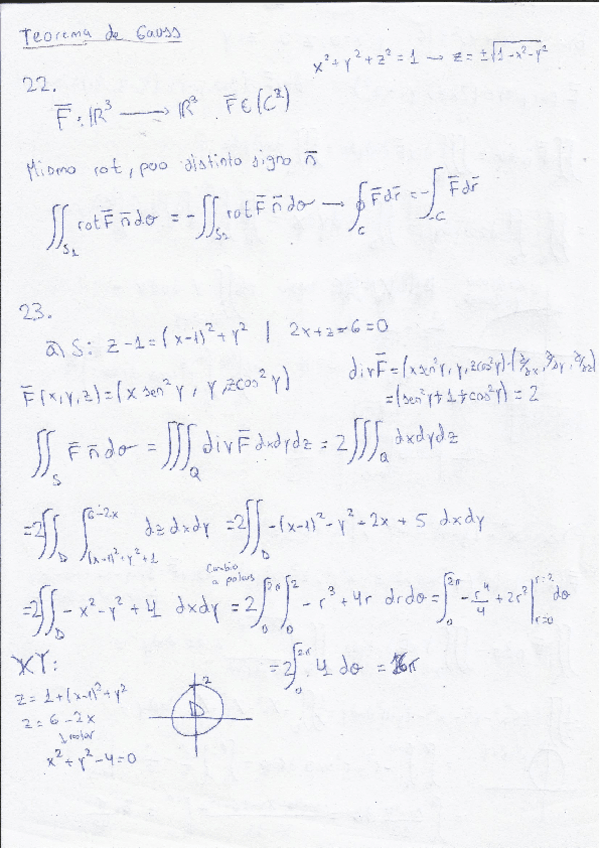 Teorema de Gauss
x² + y² + z² = 1 → z = ±√(1-x²-y²)
22.
F̄: ℝ³ → ℝ³ F̄ ∈ (C²)
Mismo rot, pero distinto signo n̄
∬_{S₁} rot F̄ n̄ dσ = -∬_{S₂} rot F̄ n̄ dσ → ∮_C F̄ dr̄ = -∫_{-C} F̄ dr̄
23.
a) S: z-1 = (x-1)² + y² | 2x+z-6=0
F̄(x,y,z) = (x sen²y, y, z cos²y)
div F̄ = (x sen²y, y, z cos²y)·(∂/∂x, ∂/∂y, ∂/∂z)
= (sen²y + 1 + cos²y) = 2
∬_S F̄ n̄ dσ = ∭_Q div F̄ dxdydz = 2∭_Q dxdydz
= 2∬_D ∫_{(x-1)²+y²+1}^{6-2x} dz dxdy = 2∬_D -(x-1)² - y² - 2x + 5 dxdy
Cambio a polares
= 2∬_D -x² - y² + 4 dxdy = 2∫_0^{2π} ∫_0^2 -r³ + 4r drdθ = ∫_0^{2π} -r⁴/4 + 2r² |_{r=0}^{r=2} dθ
= 2∫_0^{2π} 4 dθ = 16π
XY:
z = 1 + (x-1)² + y²
z = 6 - 2x
x² + y² - 4 = 0
2
D